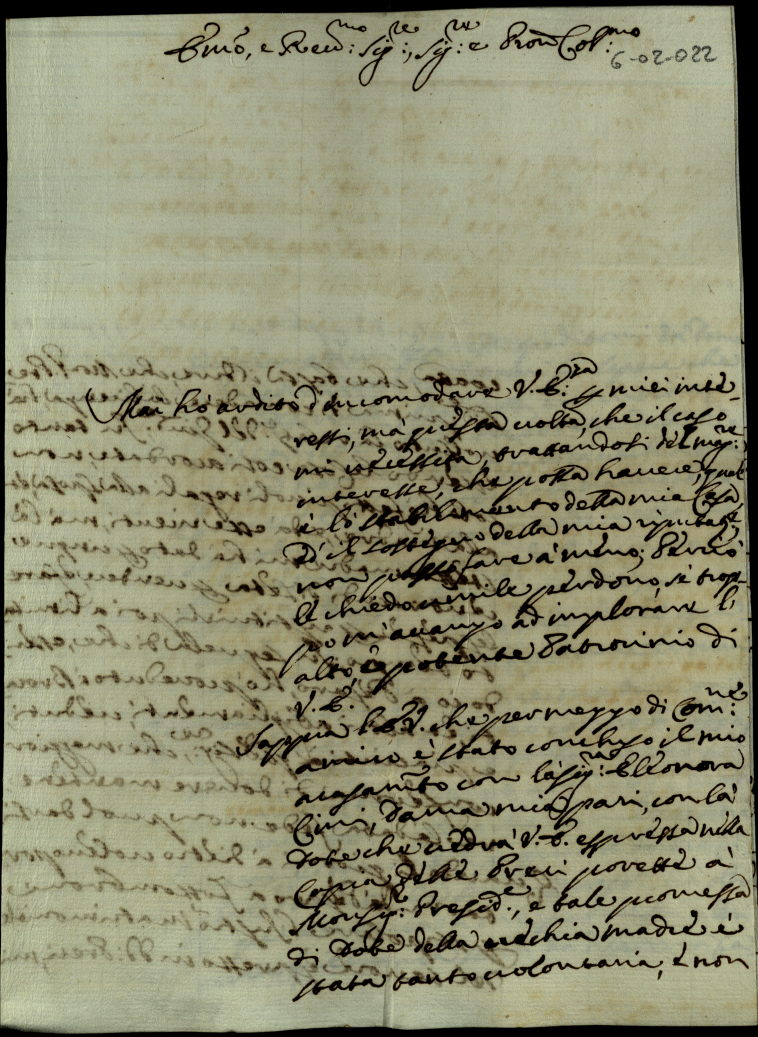 Emo, e Reu:mo Sig:re, Sig:re e Pron Col:mo
6-02-022
Mai hò ardito d'incomodare V. E:za p miei inte-
ressi, mà questa uolta, che il caso
mi necessita, trattandosi del mag:re
interesse, che possa hauere, qual
è lo stabilimento della mia Casa
d'il sostegno della mia riputaz:e
non posso fare à meno; Perciò
le chiedo umile perdono, sè trop-
po m'auanzo ad implorare l'
alto, e potente Patrocinio di
V. E.
Sappia l'E. V. che per mezzo di Com:ne
amico è stato concluso il mio
acasamto con la Sig:ra Eleonora
Cini, dama mia pari, con la
Dote che uedrà V. E. espressa nella
Copia delle Preci porette à
Monsig:re Presid:e, e tale promessa
di Dote della uechia madre è
stata tanto uolontaria, è non